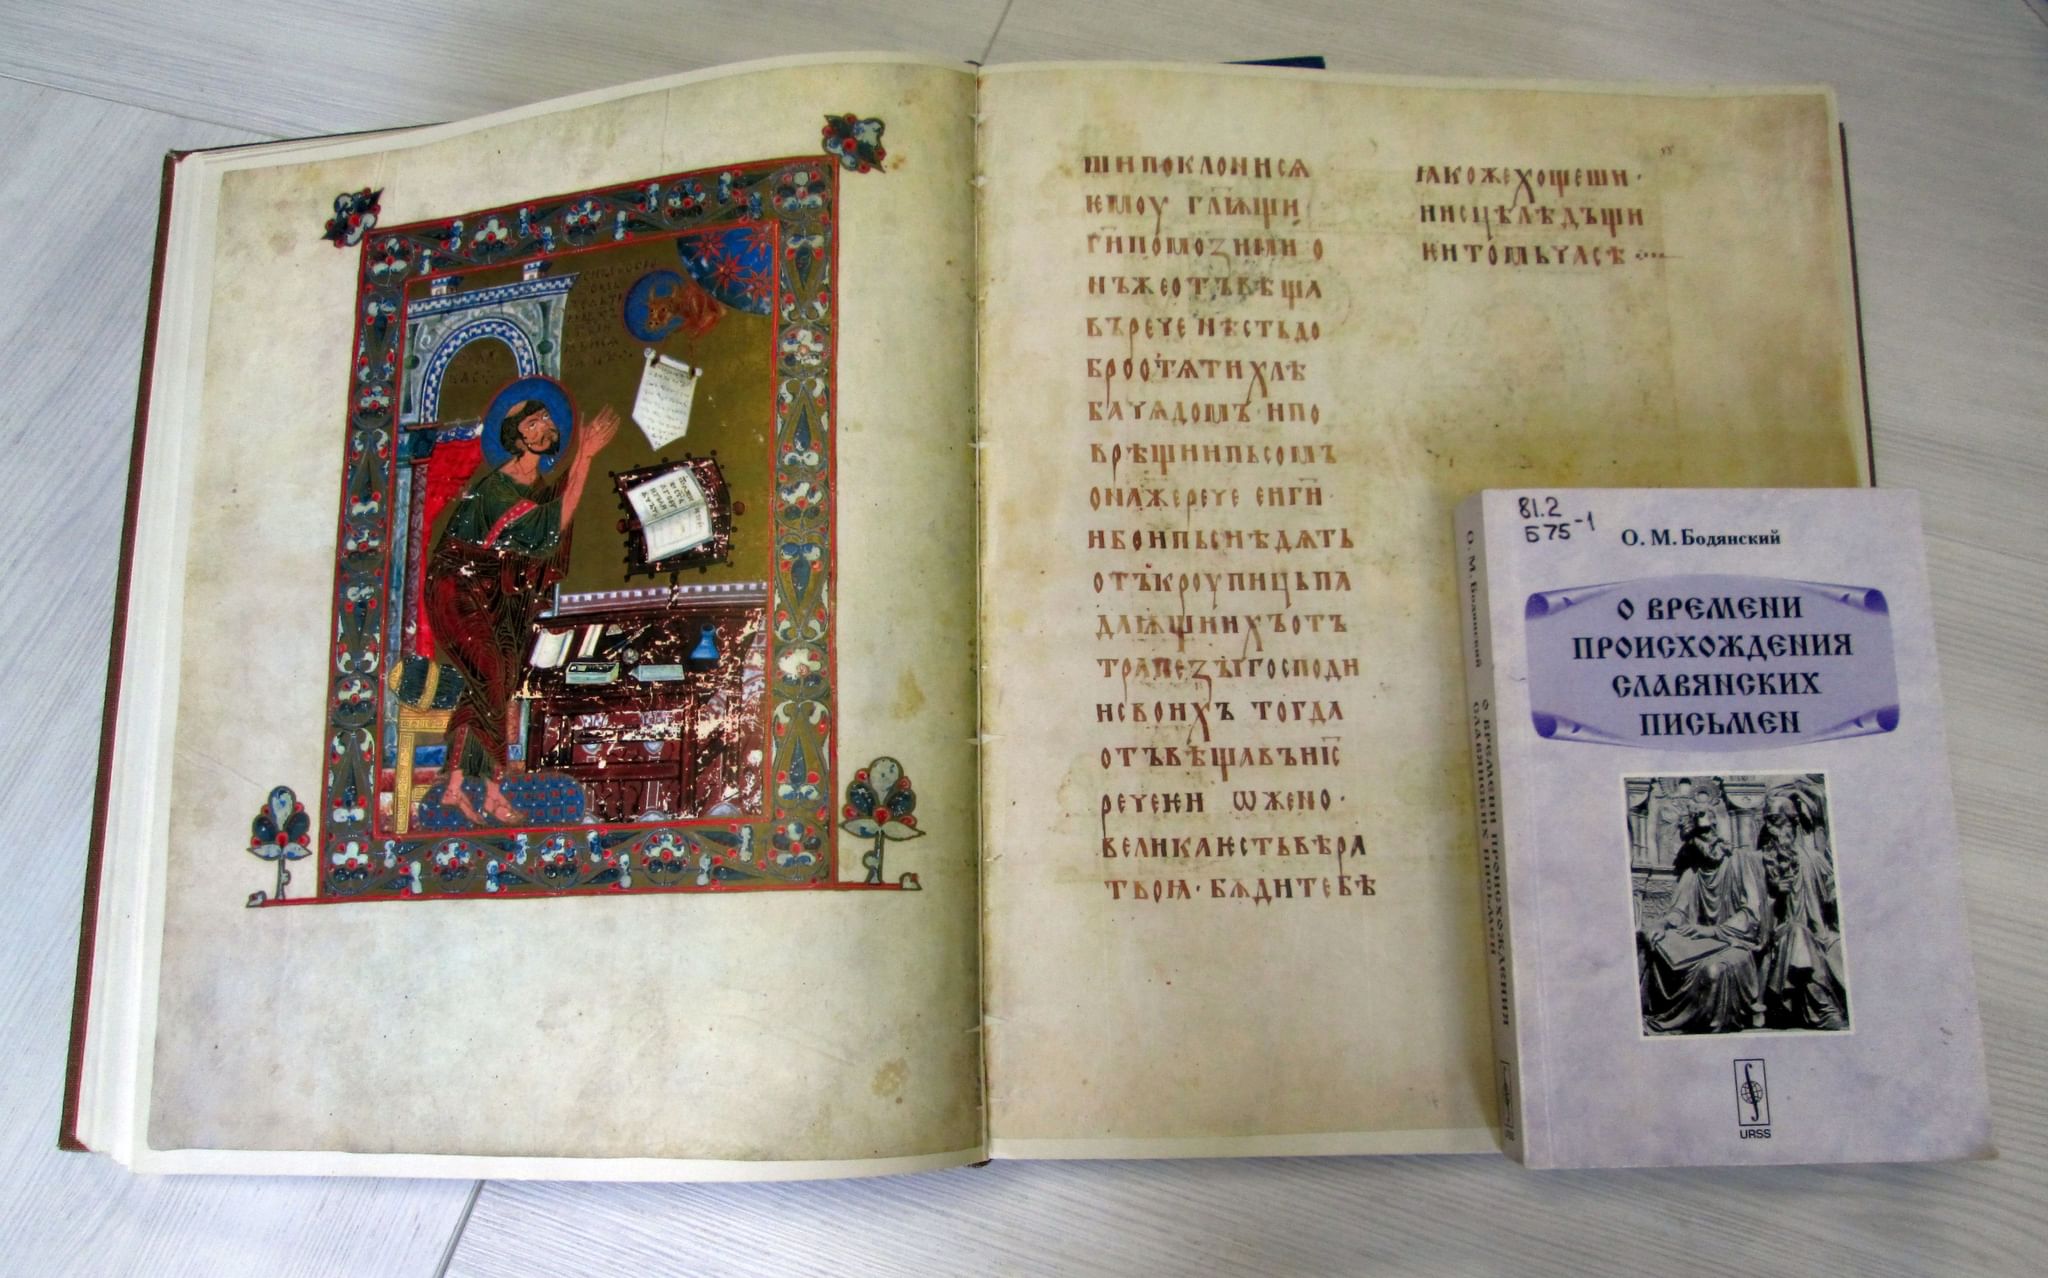 ши поклони сѧ
ѥмоу гл҃ѭщи
ги҃ помоѕи ми о
нъ же отъвѣща
въ рече нѣсть до
бро отѧти хлѣ
ба чѧдомъ · и по
врѣщи и пьсомъ
она же рече еи ги҃ ·
ибо и пьси ѣдѧть
отъ кроупиць па
даѭщиихъ отъ
трапезы господи
и своихъ тогда
отъвѣщавъ и҃с
рече ѥи ѡ жено ·
велика ѥсть вѣра
твоꙗ · бѫди тебѣ
ꙗкоже хощеши ·
и исцѣлѣ дъщи
ѥи томь часѣ
81.2
Б75-1
О. М. Бодянский
О ВРЕМЕНИ
ПРОИСХОЖДЕНИЯ
СЛАВЯНСКИХ
ПИСЬМЕН
URSS
О. М. Бодянский О ВРЕМЕНИ ПРОИСХОЖДЕНИЯ
СЛАВЯНСКИХ ПИСЬМЕН